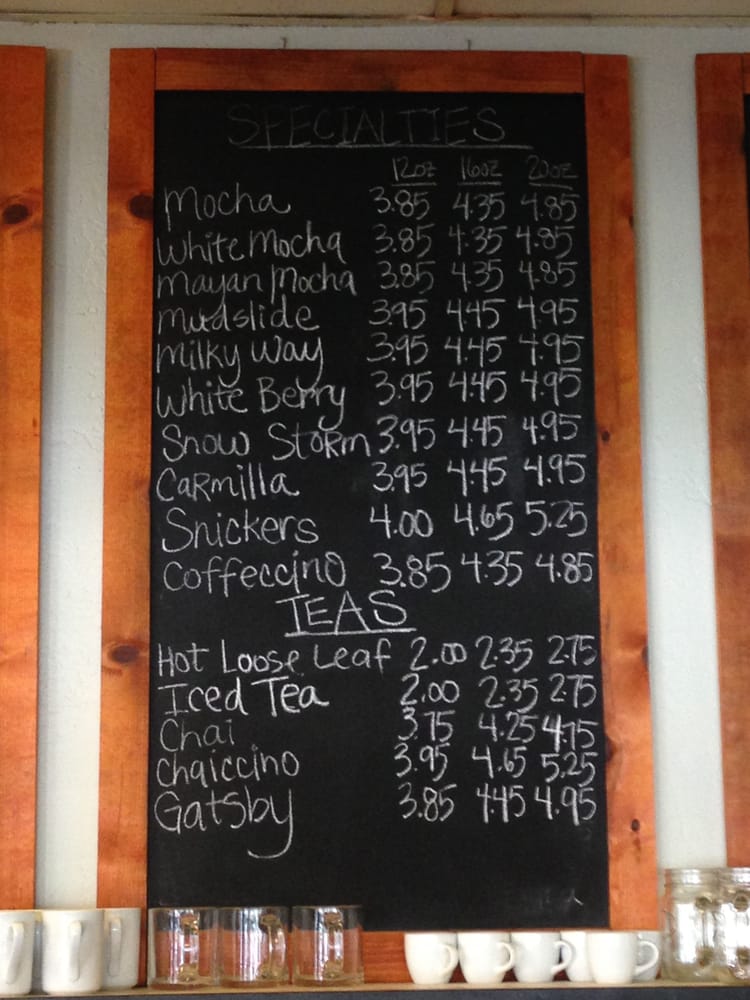 SPECIALTIES
12oz 16oz 20oz
Mocha 3.85 4.35 4.85
White Mocha 3.85 4.35 4.85
Mayan Mocha 3.85 4.35 4.85
Mudslide 3.95 4.45 4.95
Milky Way 3.95 4.45 4.95
White Berry 3.95 4.45 4.95
Snow Storm 3.95 4.45 4.95
Carmilla 3.95 4.45 4.95
Snickers 4.00 4.65 5.25
Coffeccino 3.85 4.35 4.85
TEAS
Hot Loose Leaf 2.00 2.35 2.75
Iced Tea 2.00 2.35 2.75
Chai 3.75 4.25 4.75
Chaiccino 3.95 4.65 5.25
Gatsby 3.85 4.45 4.95